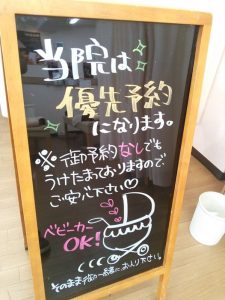 当院は
優先予約
になります。
※御予約なしでも
うけたまっておりますので、
ご安心下さい♡
ベビーカー
OK!
そのまま 一緒にお入り下さい。